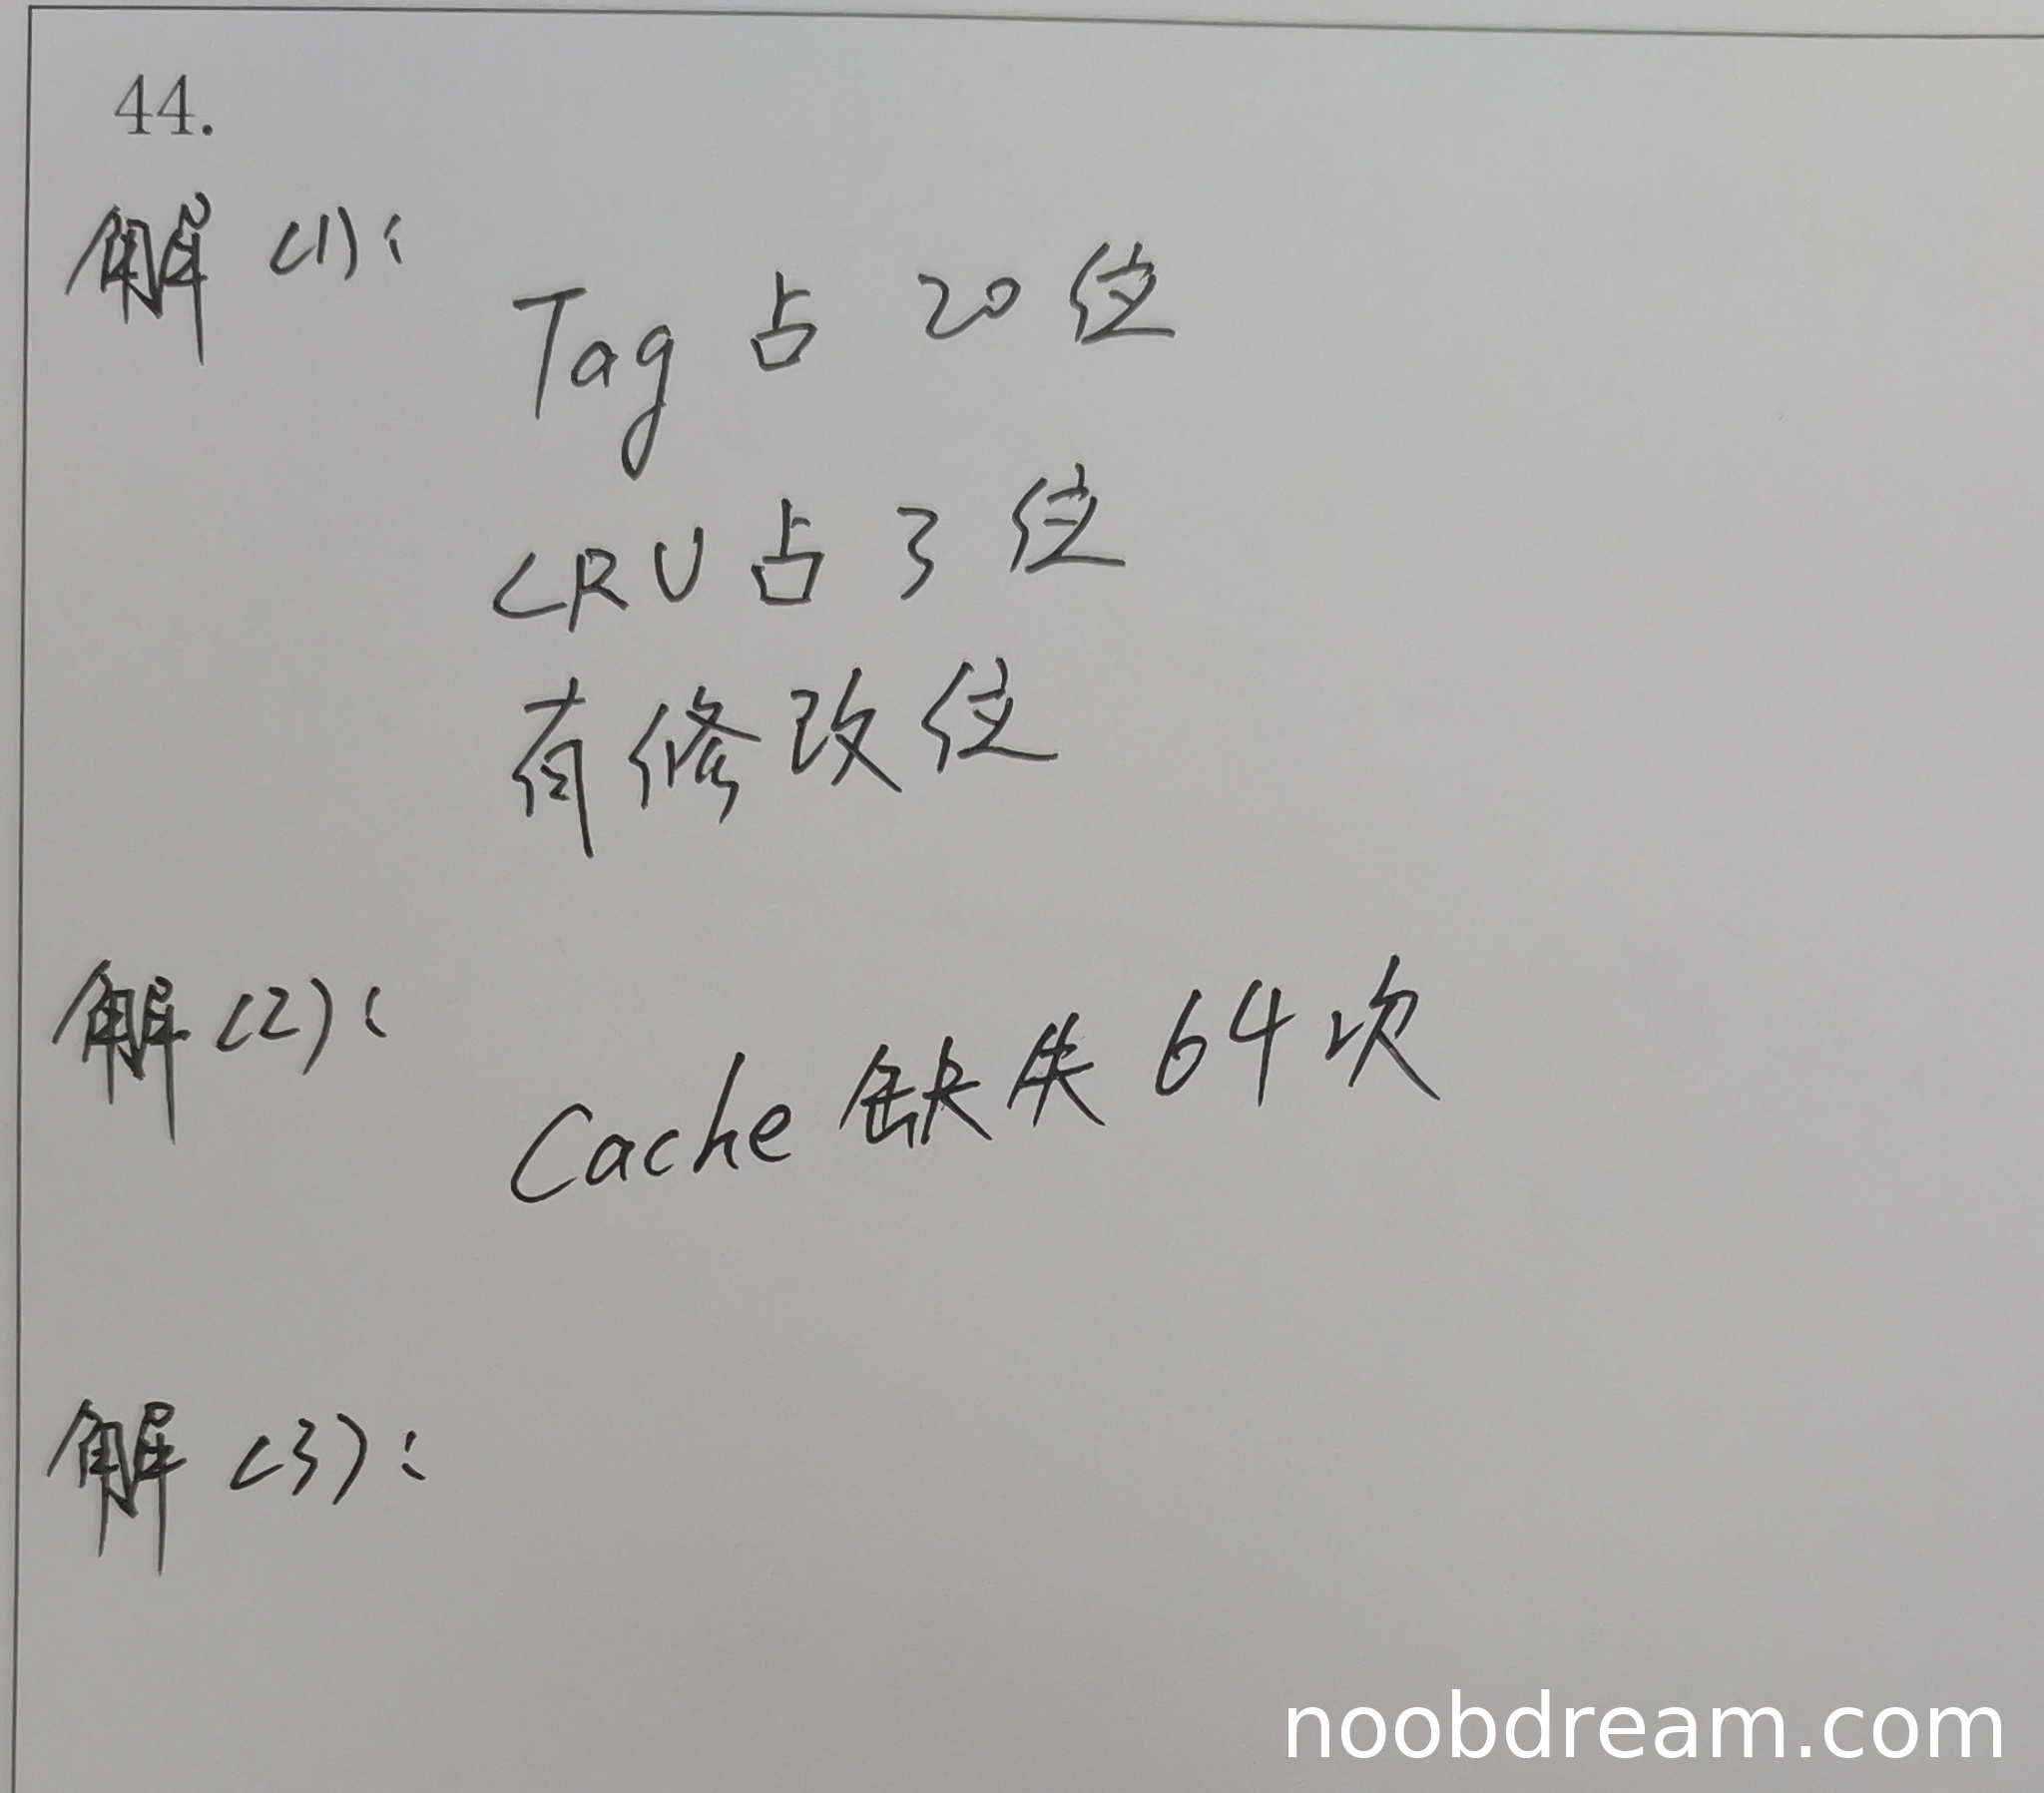 44.
解(1):
Tag占20位
LRU占3位
有修改位
解(2):
Cache缺失64次
解(3):
noobdream.com